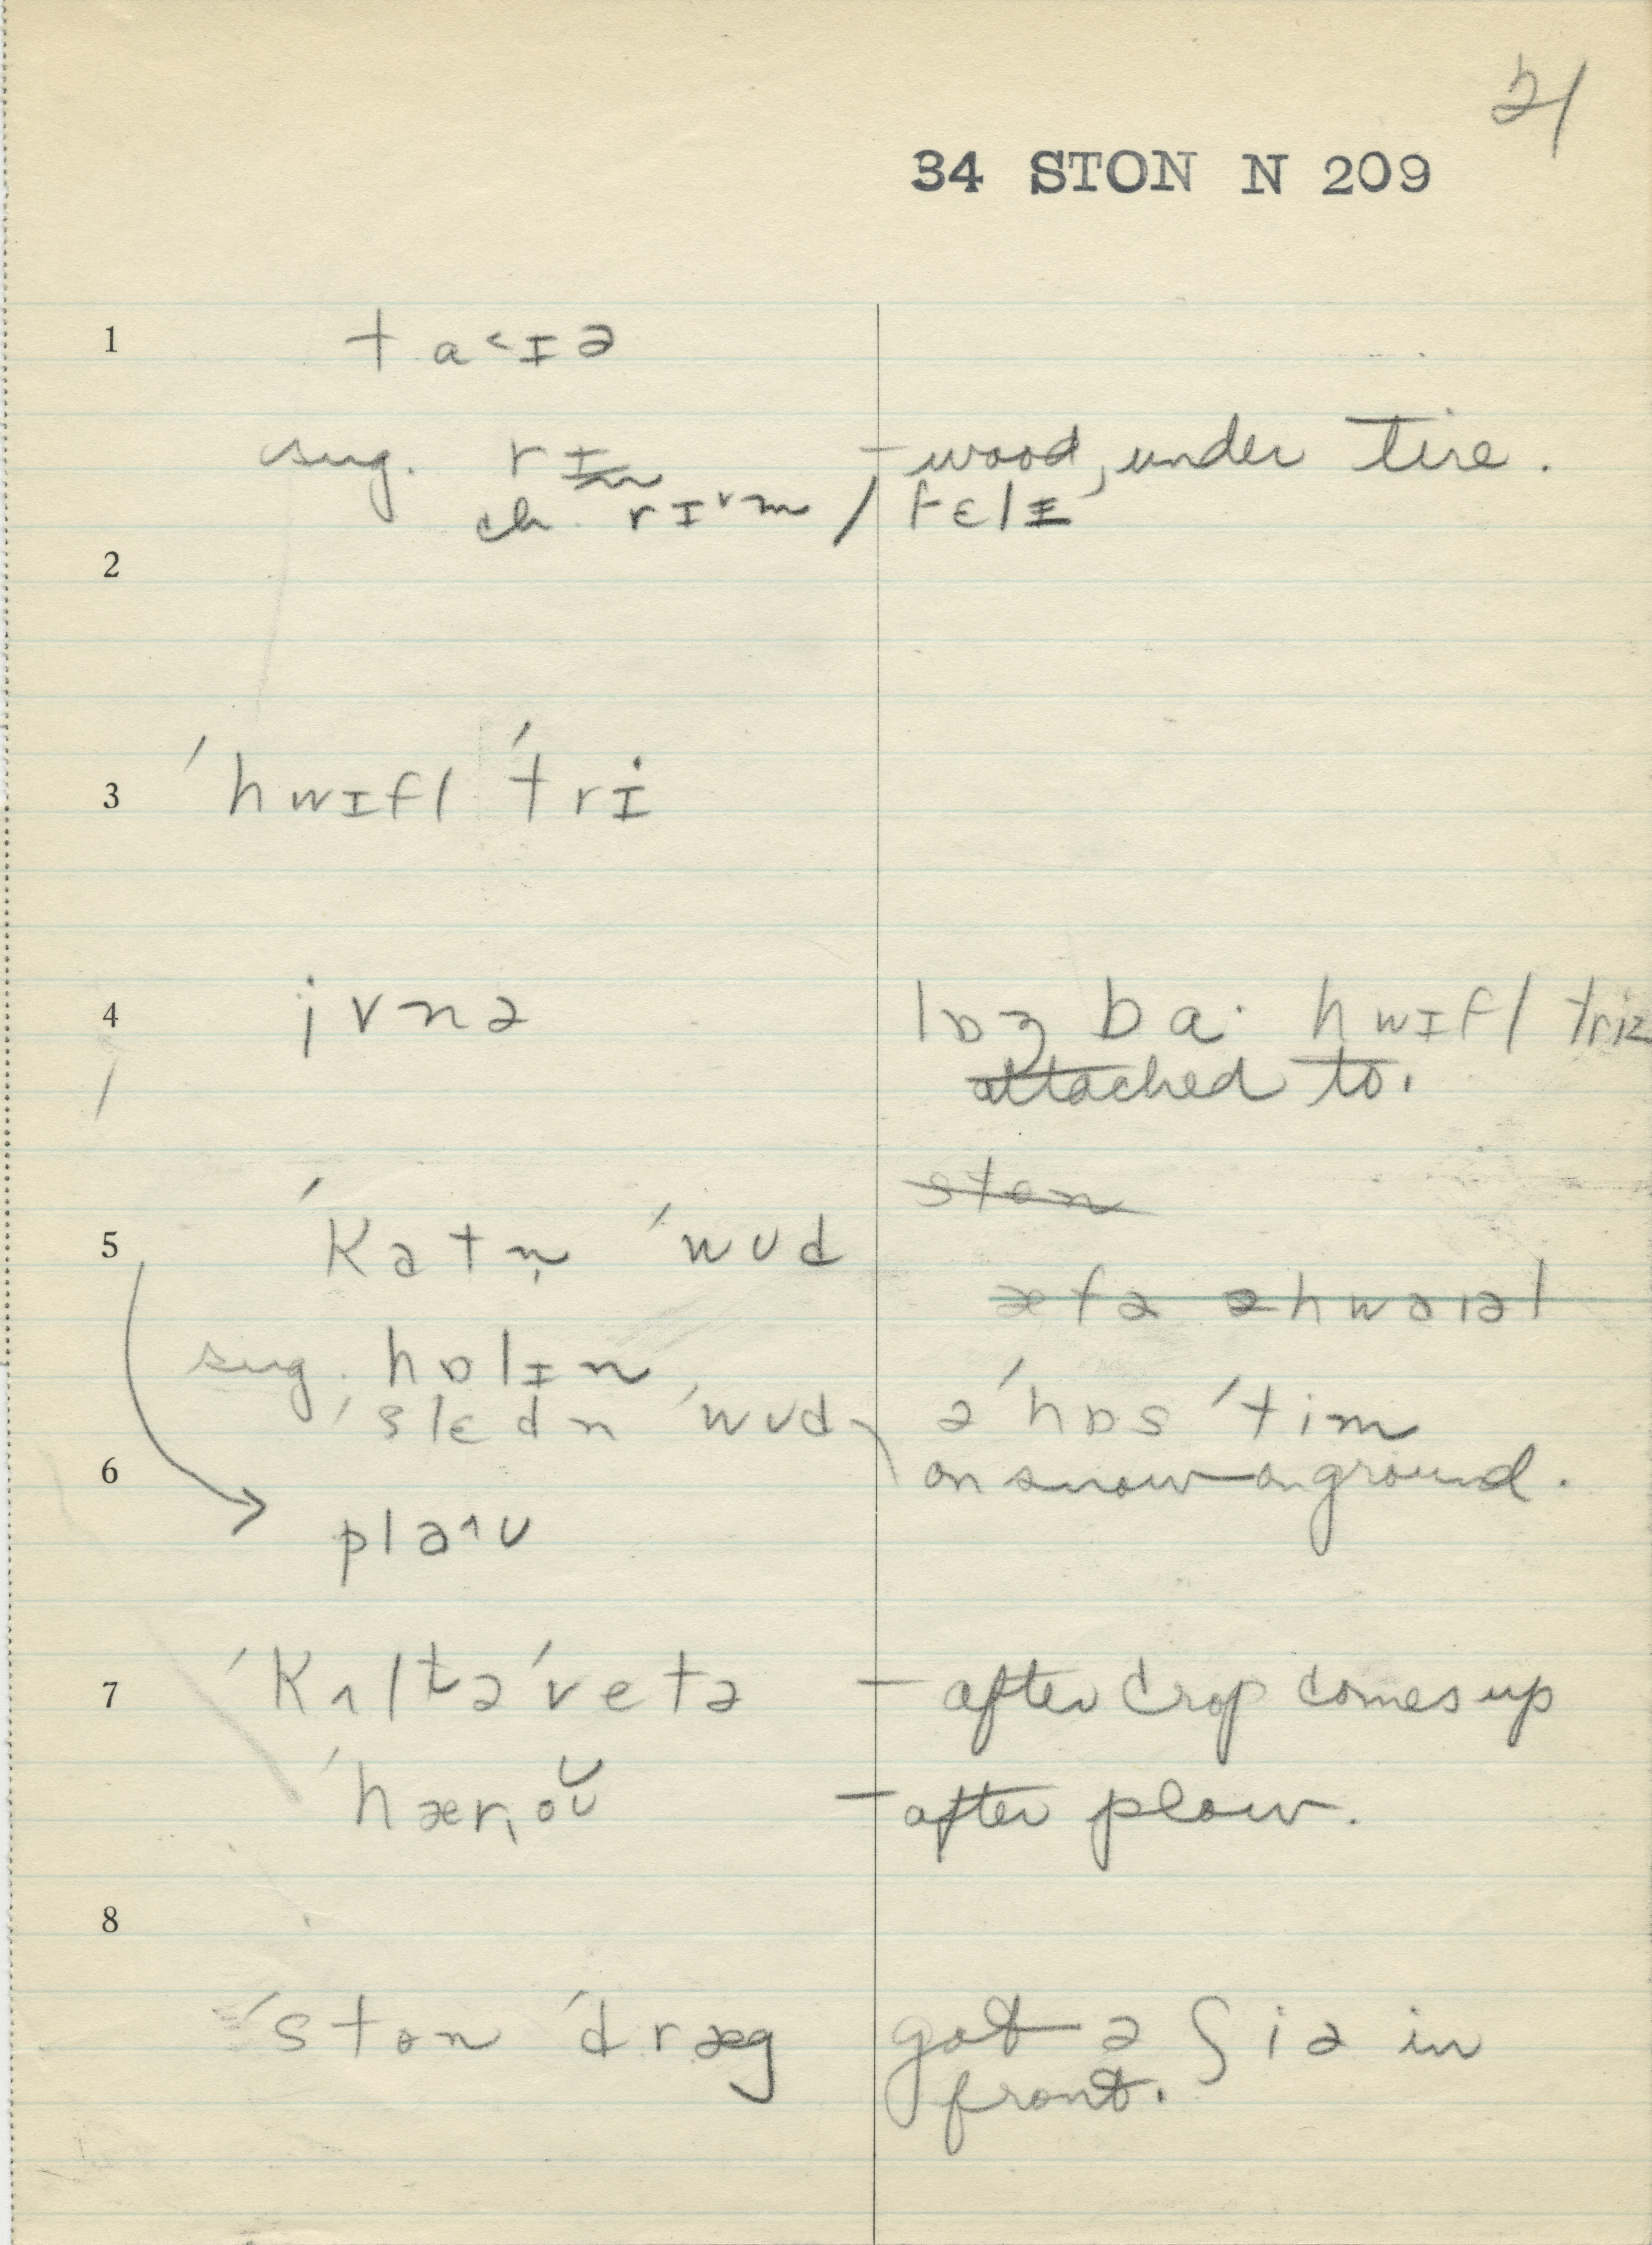 21
34 STON N 209
1 ta˂ɪə
sug. rɪm – wood, under tire.
ch. rɪ˅m / fɛlɪ
2
3 ˈhwɪfl ˈtri
4 jʌnə lɒŋ ba· hwɪfl triz
attached to.
ston
5 ˈkatn̩ ˈwʊd
æfə əhwaɪəl
sug. hɒlɪn
ˈslɛdn ˈwʊd əˈhɒs ˈtim
6 on snow on ground.
pla˄ʊ
7 ˈkʌltəˈvetə – after crop comes up
ˈhær,oʊ̆ – after plow.
8
ˈston ˈdræg got ə ʃiə in
front.